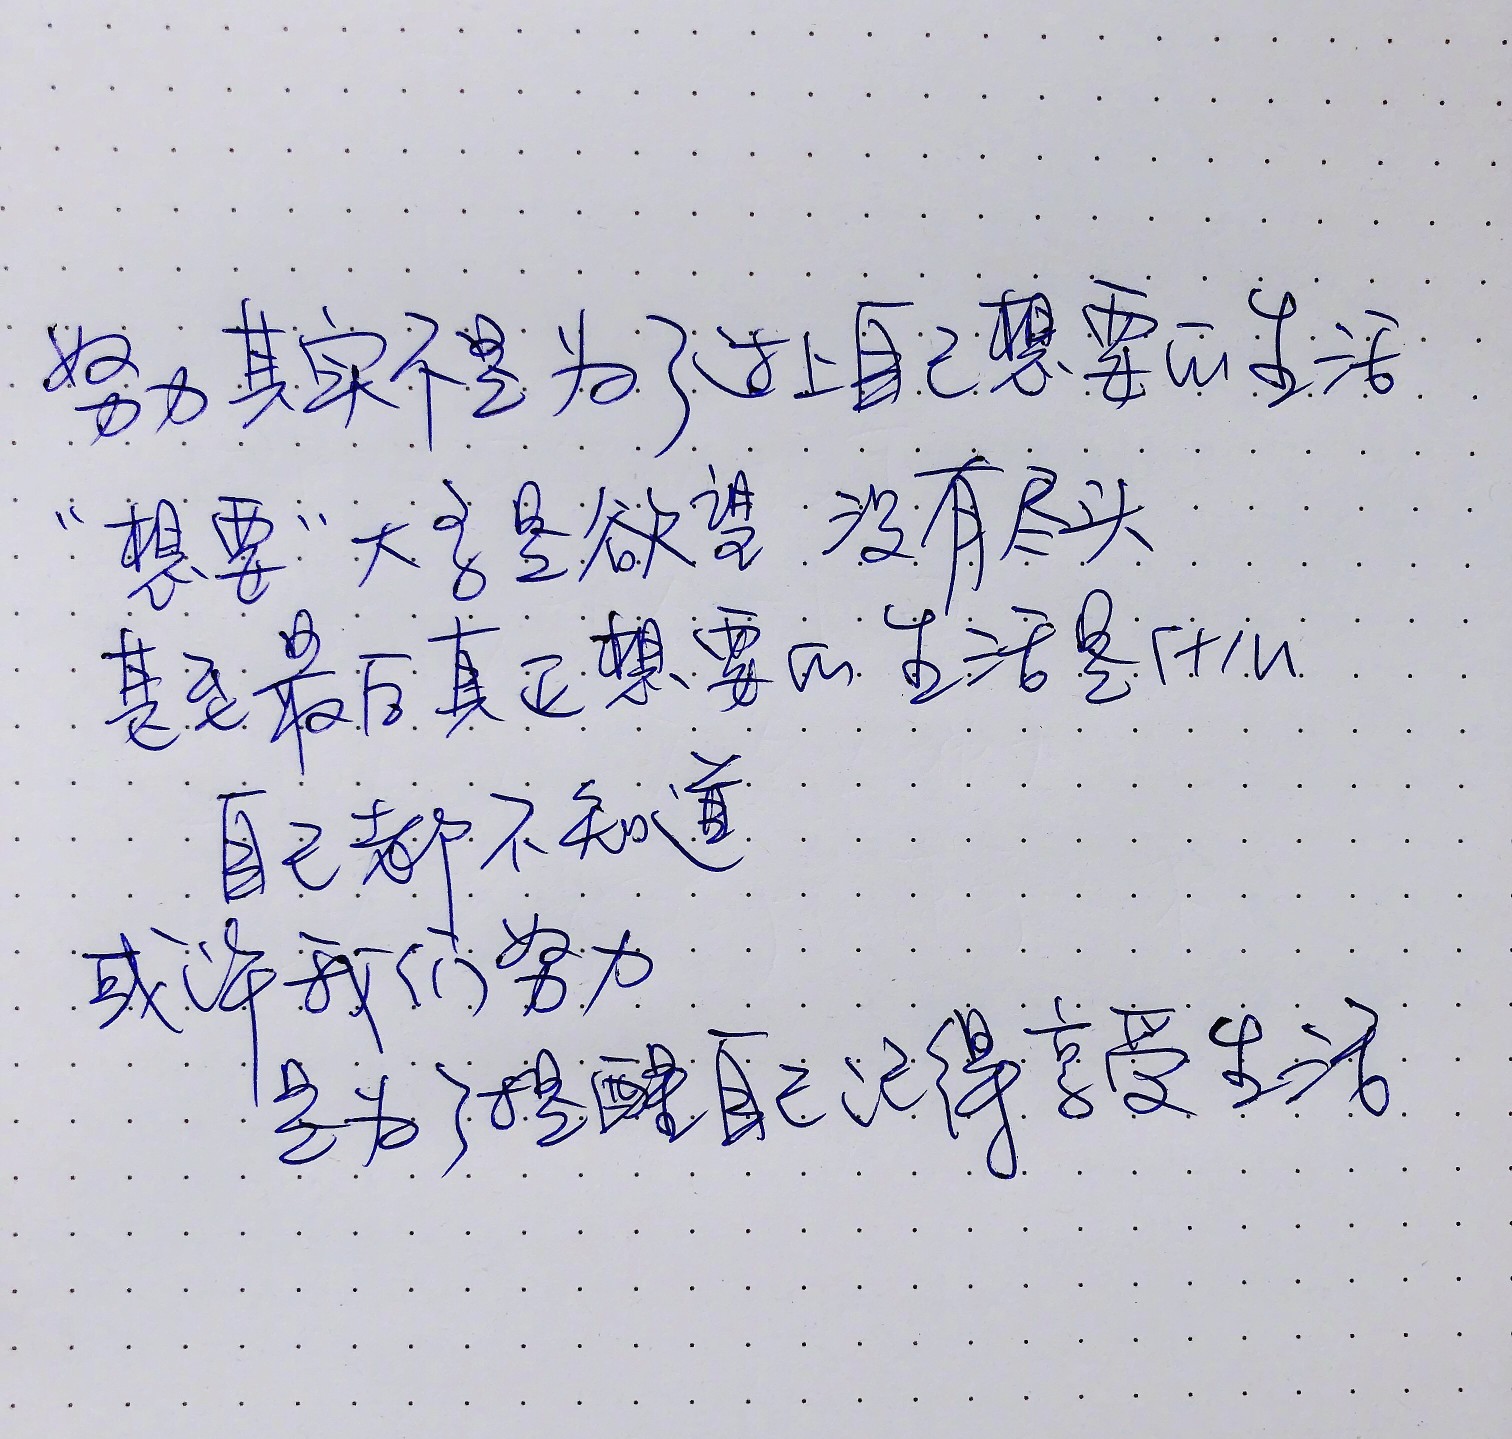 努力其实不是为了过上自己想要的生活
“想要”大多是欲望 没有尽头
甚至最后真正想要的生活是什么
自己都不知道
或许我们努力
是为了提醒自己记得享受生活